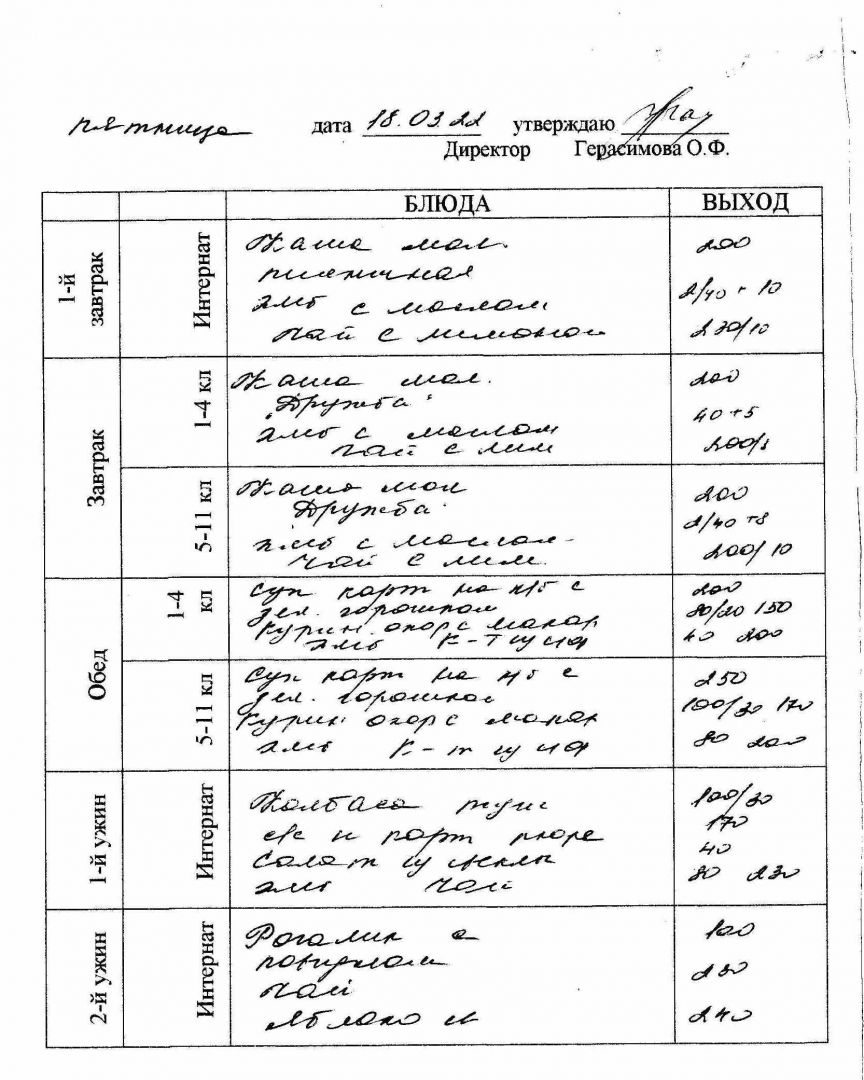 пятница дата 18.03.22 утверждаю
Директор Герасимова О.Ф.
БЛЮДА ВЫХОД
1-й завтрак Интернат
Каша мол. 200
пшеничная
хлеб с маслом 2/40 + 10
чай с лимоном 230/10
Завтрак
1-4 кл
Каша мол. 200
"Дружба"
хлеб с маслом 40+5
чай с лим 200/
5-11 кл
Каша мол 200
Дружба
хлеб с маслом 2/40 +8
чай с лим. 200/10
Обед
1-4 кл
Суп карт на к/б с 200
зел. горошком 80/20 150
Курин. окор с макар 40 200
хлеб К-т
5-11 кл
Суп карт на к/б с 250
зел. горошком
Курин окор с макар 100/30 170
хлеб К-т 80 200
1-й ужин Интернат
Колбаса туш 100/30
в/с и карт пюре 170
Салат свеклы 40
хлеб чай 80 230
2-й ужин Интернат
Рогалик с 100
повидлом
чай 230
яблоко 240